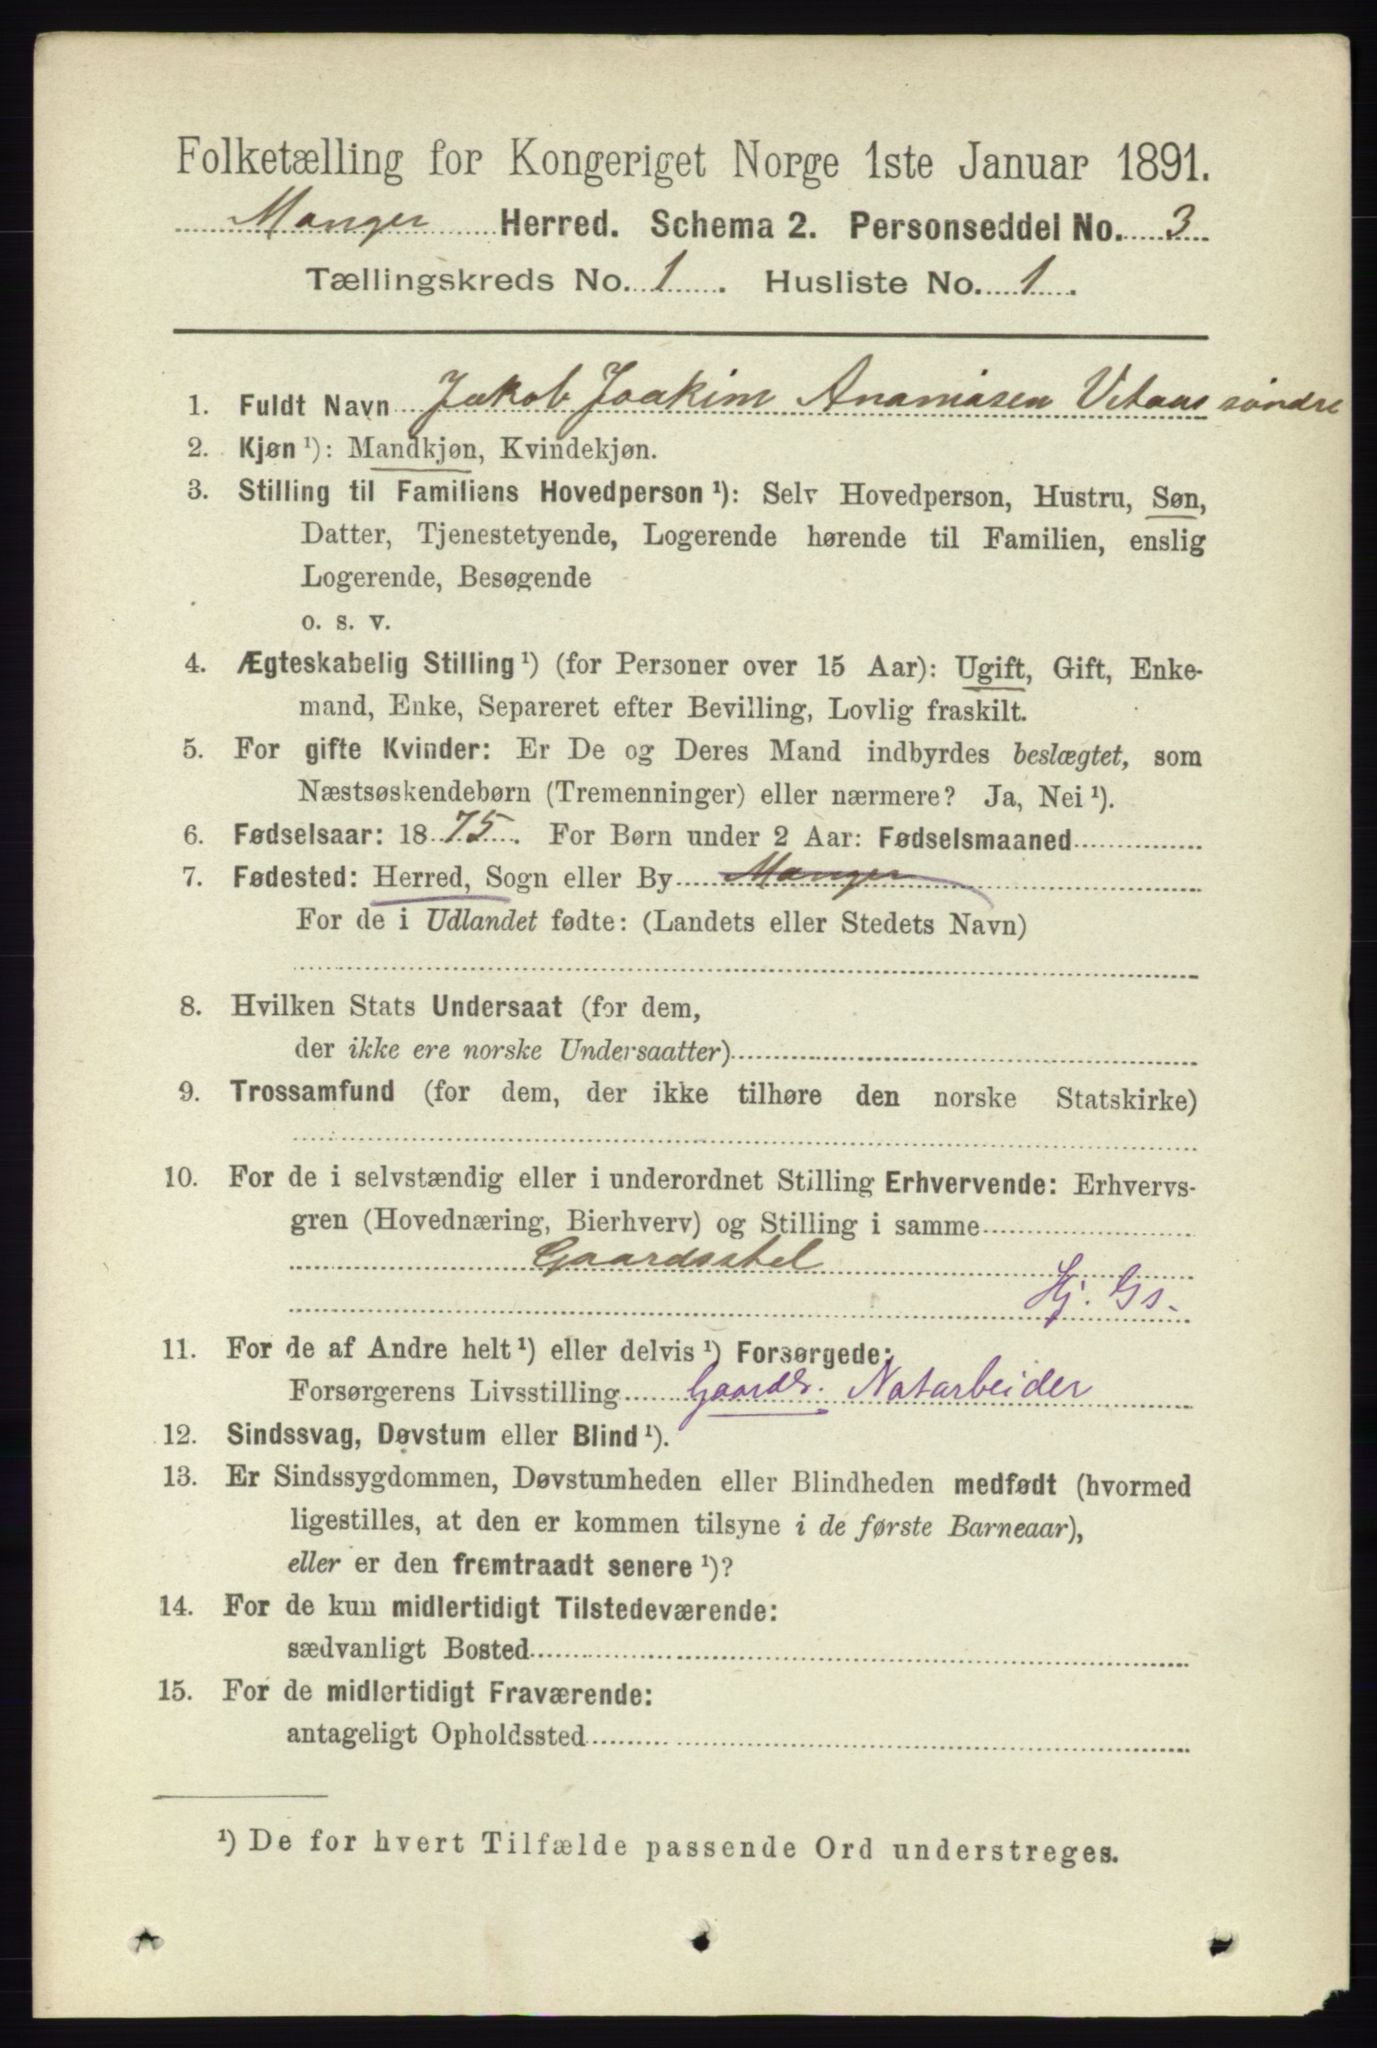 Folketælling for Kongeriget Norge 1ste Januar 1891.
Manger Herred. Schema 2. Personseddel No. 3
Tællingskreds No. 1. Husliste No. 1.
1. Fuldt Navn Jakob Joakim Ananiasen Vetaas söndre
2. Kjøn ¹): Mandkjøn, Kvindekjøn.
3. Stilling til Familiens Hovedperson ¹): Selv Hovedperson, Hustru, Søn,
Datter, Tjenestetyende, Logerende hørende til Familien, enslig
Logerende, Besøgende
o. s. v.
4. Ægteskabelig Stilling ¹) (for Personer over 15 Aar): Ugift, Gift, Enke-
mand, Enke, Separeret efter Bevilling, Lovlig fraskilt.
5. For gifte Kvinder: Er De og Deres Mand indbyrdes beslægtet, som
Næstsøskendebørn (Tremenninger) eller nærmere? Ja, Nei ¹).
6. Fødselsaar: 1875. For Børn under 2 Aar: Fødselsmaaned
7. Fødested: Herred, Sogn eller By Manger
For de i Udlandet fødte: (Landets eller Stedets Navn)
8. Hvilken Stats Undersaat (for dem,
der ikke ere norske Undersaatter)
9. Trossamfund (for dem, der ikke tilhøre den norske Statskirke)
10. For de i selvstændig eller i underordnet Stilling Erhvervende: Erhvervs-
gren (Hovednæring, Bierhverv) og Stilling i samme
Gaardsstel
Hj. Gs.
11. For de af Andre helt ¹) eller delvis ¹) Forsørgede:
Forsørgerens Livsstilling Gaardbr. Notarbeider
12. Sindssvag, Døvstum eller Blind ¹).
13. Er Sindssygdommen, Døvstumheden eller Blindheden medfødt (hvormed
ligestilles, at den er kommen tilsyne i de første Barneaar),
eller er den fremtraadt senere ¹)?
14. For de kun midlertidigt Tilstedeværende:
sædvanligt Bosted
15. For de midlertidigt Fraværende:
antageligt Opholdssted
¹) De for hvert Tilfælde passende Ord understreges.